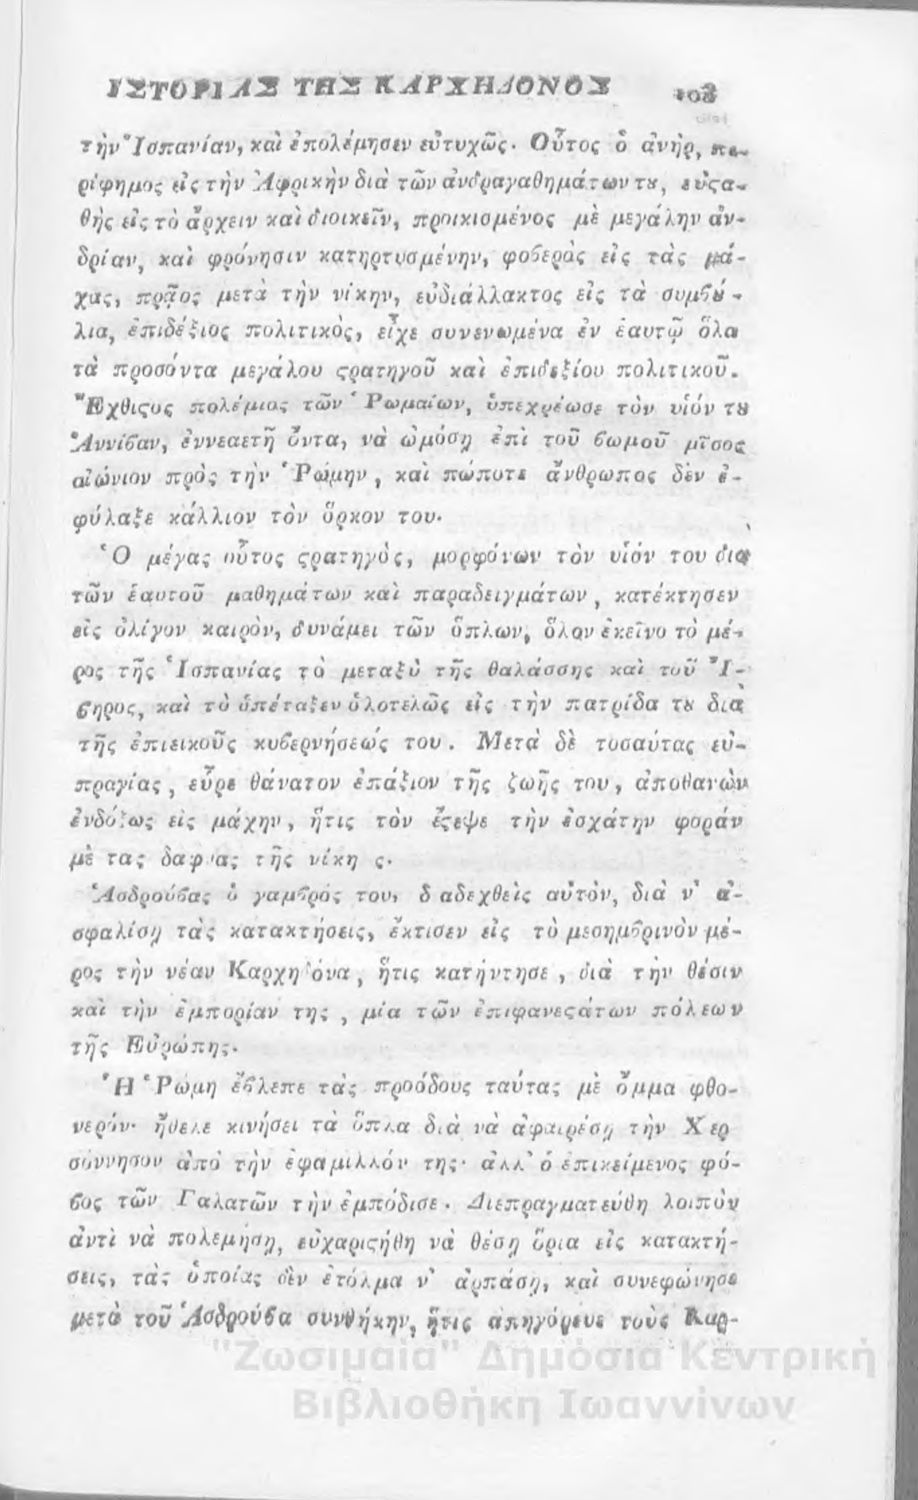 ΙΣΤΟΡΙΑΣ ΤΗΣ ΚΑΡΧΗΔΟΝΟΣ 103
τὴν Ἰσπανίαν, καὶ ἐπολέμησεν εὐτυχῶς. Οὗτος ὁ ἀνὴρ, πε-
ρίφημος εἰς τὴν Ἀφρικὴν διὰ τῶν ἀνδραγαθημάτων τȣ, εὐϛα-
θὴς εἰς τὸ ἄρχειν καὶ διοικεῖν, προικισμένος μὲ μεγάλην ἀν-
δρίαν, καὶ φρόνησιν κατηρτυσμένην, φοβερὸς εἰς τὰς μά-
χας, πρᾷος μετὰ τὴν νίκην, εὐδιάλλακτος εἰς τὰ συμβȣ-
λια, ἐπιδέξιος πολιτικὸς, εἶχε συνενωμένα ἐν ἑαυτῷ ὅλα
τὰ προσόντα μεγάλου ϛρατηγοῦ καὶ ἐπιδεξίου πολιτικοῦ.
Ἔχθιϛος πολέμιος τῶν Ῥωμαίων, ὑπεχρέωσε τὸν υἱόν τȣ
Ἀννίβαν, ἐννεαετῆ ὄντα, νὰ ὠμόσῃ ἐπὶ τοῦ βωμοῦ μῖσος
αἰώνιον πρὸς τὴν Ῥώμην, καὶ πώποτε ἄνθρωπος δὲν ἐ-
φύλαξε κάλλιον τὸν ὅρκον του.
Ὁ μέγας οὗτος ϛρατηγὸς, μορφόνων τὸν υἱόν του διὰ
τῶν ἑαυτοῦ μαθημάτων καὶ παραδειγμάτων, κατέκτησεν
εἰς ὀλίγον καιρὸν, δυνάμει τῶν ὅπλων, ὅλον ἐκεῖνο τὸ μέ-
ρος τῆς Ἱσπανίας τὸ μεταξὺ τῆς θαλάσσης καὶ τοῦ Ἴ-
βηρος, καὶ τὸ ὑπέταξεν ὁλοτελῶς εἰς τὴν πατρίδα τȣ διὰ
τῆς ἐπιεικοῦς κυβερνήσεώς του. Μετὰ δὲ τοσαύτας εὐ-
πραγίας, εὗρε θάνατον ἐπάξιον τῆς ζωῆς του, ἀποθανὼν
ἐνδόξως εἰς μάχην, ἥτις τὸν ἔϛεψε τὴν ἐσχάτην φορὰν
μὲ τας δαφνας τῆς νίκης.
Ἀσδρούβας ὁ γαμβρός του, διαδεχθεὶς αὐτὸν, διὰ ν' ἀ-
σφαλίσῃ τὰς κατακτήσεις, ἔκτισεν εἰς τὸ μεσημβρινὸν μέ-
ρος τὴν νέαν Καρχηδόνα, ἥτις κατήντησε, διὰ τὴν θέσιν
καὶ τὴν ἐμπορίαν της, μία τῶν ἐπιφανεϛάτων πόλεων
τῆς Εὐρώπης.
Ἡ Ῥώμη ἔβλεπε τὰς προόδους ταύτας μὲ ὄμμα φθο-
νερόν· ἤθελε κινήσει τὰ ὅπλα διὰ νὰ ἀφαιρέσῃ τὴν Χερ
σόννησον ἀπὸ τὴν ἐφαμιλλόν της· ἀλλ' ὁ ἐπικείμενος φό-
βος τῶν Γαλατῶν τὴν ἐμπόδισε. Διεπραγματεύθη λοιπὸν
ἀντὶ νὰ πολεμήσῃ, εὐχαριϛήθη νὰ θέσῃ ὅρια εἰς κατακτή-
σεις, τὰς ὁποίας δὲν ἐτόλμα ν' ἁρπάσῃ, καὶ συνεφώνησε
μετὰ τοῦ Ἀσδρούβα συνθήκην, ἥτις ἀπηγόρευε τοὺς Καρ-
"Ζωσιμαία" Δημόσια Κεντρική
Βιβλιοθήκη Ιωαννίνων